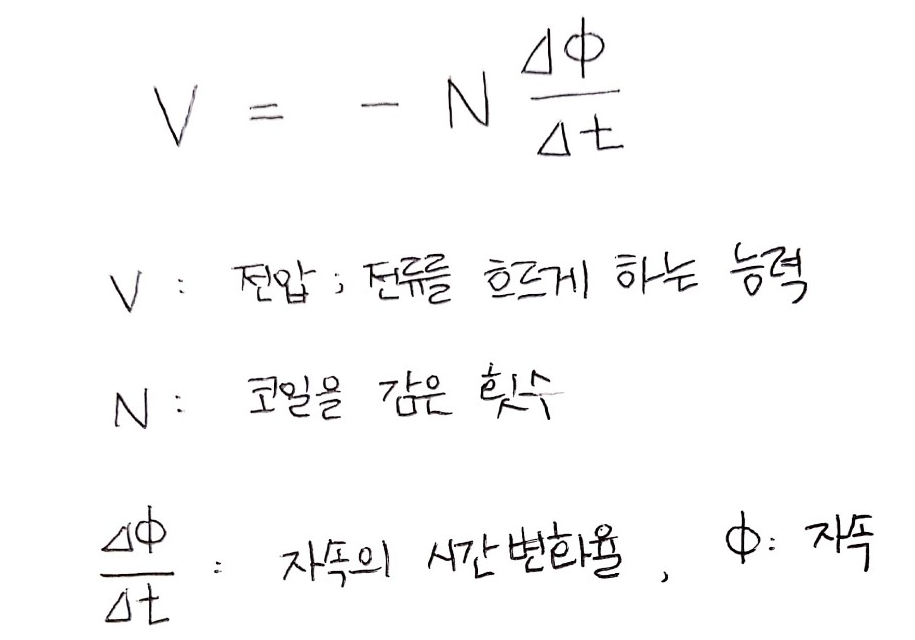 V = - N ΔΦ/Δt
V : 전압 ; 전류를 흐르게 하는 능력
N : 코일을 감은 횟수
ΔΦ/Δt : 자속의 시간변화율, Φ: 자속